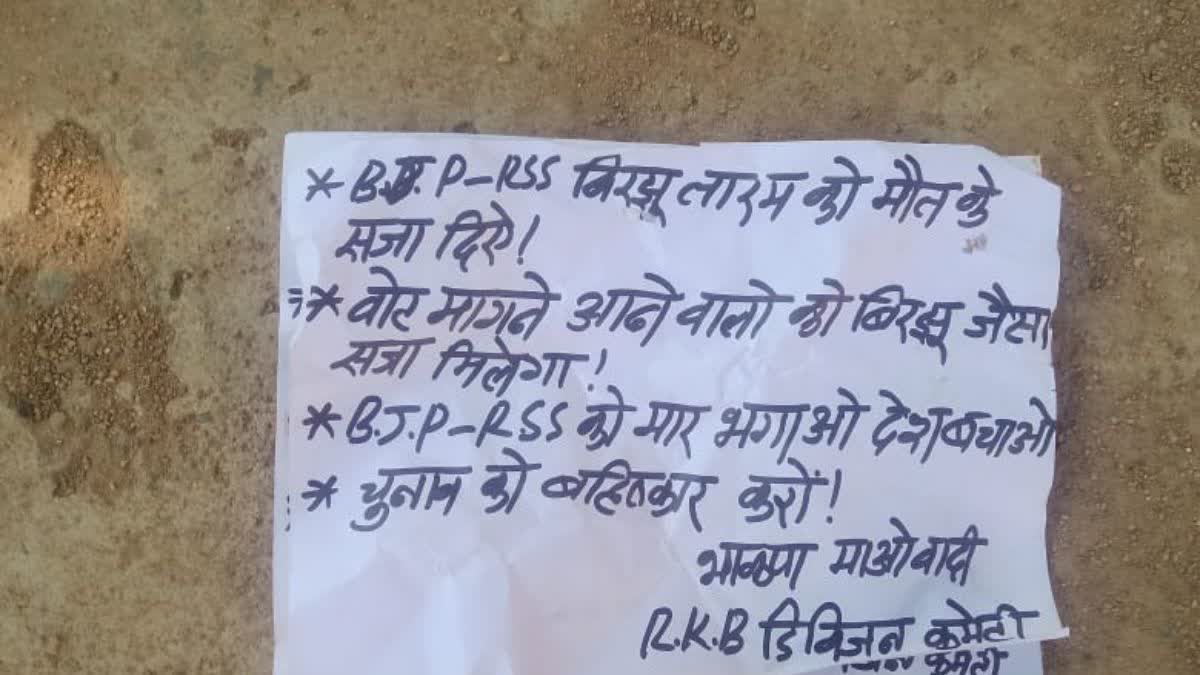 * B.J.P-RSS बिरझू तारम को मौत के
सजा दिऐ!
* वोट मागने आने वालो को बिरझू जैसा
सजा मिलेगा!
* B.J.P-RSS को मार भगाओ देश बचाओ
* चुनाव को बहितकार करों!
भाकपा माओवादी
R.K.B डिविजन कमेटी
कमेटी